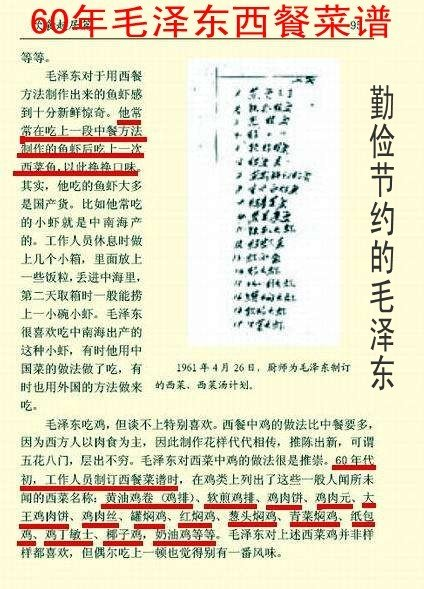 60年毛泽东西餐菜谱
93
等等。
毛泽东对于用西餐
方法制作出来的鱼虾感
到十分新鲜惊奇。他常
常在吃上一段中餐方法
制作的鱼虾后吃上一次
西菜鱼,以此换换口味。
其实,他吃的鱼虾大多
是国产货。比如他常吃
的小虾就是中南海产
的。工作人员休息时做
上几个小箱,里面放上
一些饭粒,丢进中海里,
第二天取箱时一般能捞
上一小碗小虾。毛泽东
很喜欢吃中南海出产的
这种小虾,有时他用中
国菜的做法做了吃,有
时也用外国的方法做来
吃。
1961年4月26日,厨师为毛泽东制订
的西菜、西菜汤计划。
勤俭节约的毛泽东
毛泽东吃鸡,但谈不上特别喜欢。西餐中鸡的做法比中餐要多,
因为西方人以肉食为主,因此制作花样代代相传,推陈出新,可谓
五花八门,层出不穷。毛泽东对西菜中鸡的做法很是推崇。60年代
初,工作人员制订西餐菜谱时,在鸡类上列出了这些一般人闻所未
闻的西菜名称:黄油鸡卷(鸡排)、软煎鸡排、鸡肉饼、鸡肉元、大
王鸡肉饼、鸡肉丝、罐焖鸡、红焖鸡、葱头焖鸡、青菜焖鸡、纸包
鸡、鸡丁敏士、椰子鸡、奶油鸡等等。毛泽东对上述西菜鸡并非样
样都喜欢,但偶尔吃上一顿也觉得别有一番风味。